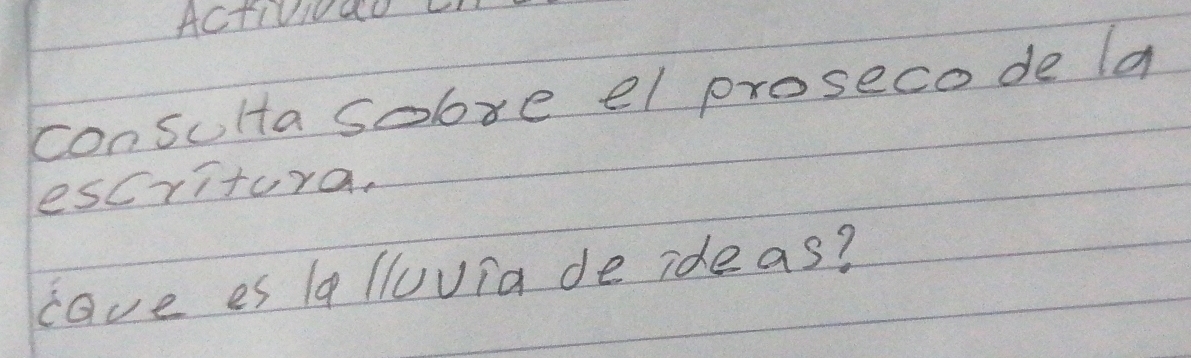 Actividad en
consulta sobre el proseco de la
escritura.
¿que es la lluvia de ideas?